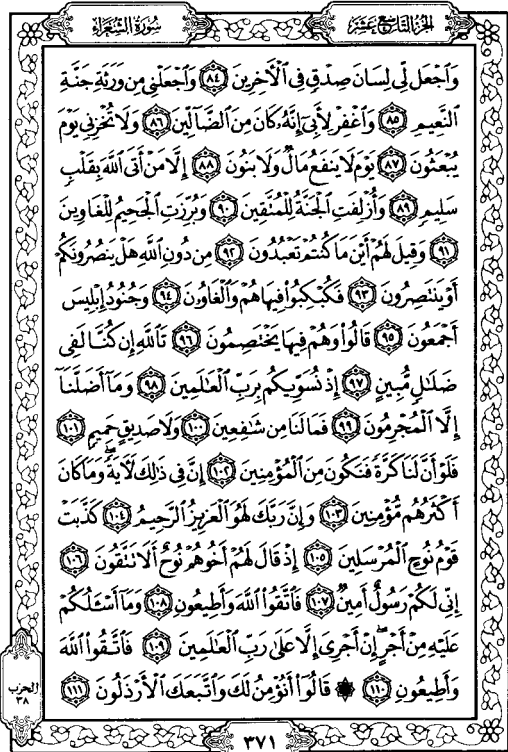 سورة الشعراء
الجزء التاسع عشر
وَٱجْعَل لِّى لِسَانَ صِدْقٍ فِى ٱلْأَخِرِينَ ٨٤ وَٱجْعَلْنِى مِن وَرَثَةِ جَنَّةِ
ٱلنَّعِيمِ ٨٥ وَٱغْفِرْ لِأَبِىٓ إِنَّهُۥ كَانَ مِنَ ٱلضَّآلِّينَ ٨٦ وَلَا تُخْزِنِى يَوْمَ
يُبْعَثُونَ ٨٧ يَوْمَ لَا يَنفَعُ مَالٌ وَلَا بَنُونَ ٨٨ إِلَّا مَنْ أَتَى ٱللَّهَ بِقَلْبٍ
سَلِيمٍ ٨٩ وَأُزْلِفَتِ ٱلْجَنَّةُ لِلْمُتَّقِينَ ٩٠ وَبُرِّزَتِ ٱلْجَحِيمُ لِلْغَاوِينَ
٩١ وَقِيلَ لَهُمْ أَيْنَ مَا كُنتُمْ تَعْبُدُونَ ٩٢ مِن دُونِ ٱللَّهِ هَلْ يَنصُرُونَكُمْ
أَوْ يَنتَصِرُونَ ٩٣ فَكُبْكِبُوا۟ فِيهَا هُمْ وَٱلْغَاوُۥنَ ٩٤ وَجُنُودُ إِبْلِيسَ
أَجْمَعُونَ ٩٥ قَالُوا۟ وَهُمْ فِيهَا يَخْتَصِمُونَ ٩٦ تَٱللَّهِ إِن كُنَّا لَفِى
ضَلَٰلٍ مُّبِينٍ ٩٧ إِذْ نُسَوِّيكُم بِرَبِّ ٱلْعَٰلَمِينَ ٩٨ وَمَآ أَضَلَّنَآ
إِلَّا ٱلْمُجْرِمُونَ ٩٩ فَمَا لَنَا مِن شَٰفِعِينَ ١٠٠ وَلَا صَدِيقٍ حَمِيمٍ ١٠١
فَلَوْ أَنَّ لَنَا كَرَّةً فَنَكُونَ مِنَ ٱلْمُؤْمِنِينَ ١٠٢ إِنَّ فِى ذَٰلِكَ لَأَيَةً ۖ وَمَا كَانَ
أَكْثَرُهُم مُّؤْمِنِينَ ١٠٣ وَإِنَّ رَبَّكَ لَهُوَ ٱلْعَزِيزُ ٱلرَّحِيمُ ١٠٤ كَذَّبَتْ
قَوْمُ نُوحٍ ٱلْمُرْسَلِينَ ١٠٥ إِذْ قَالَ لَهُمْ أَخُوهُمْ نُوحٌ أَلَا تَتَّقُونَ ١٠٦
إِنِّى لَكُمْ رَسُولٌ أَمِينٌ ١٠٧ فَٱتَّقُوا۟ ٱللَّهَ وَأَطِيعُونِ ١٠٨ وَمَآ أَسْـَٔلُكُمْ
عَلَيْهِ مِنْ أَجْرٍ ۖ إِنْ أَجْرِىَ إِلَّا عَلَىٰ رَبِّ ٱلْعَٰلَمِينَ ١٠٩ فَٱتَّقُوا۟ ٱللَّهَ
وَأَطِيعُونِ ١١٠ ۞ قَالُوٓا۟ أَنُؤْمِنُ لَكَ وَٱتَّبَعَكَ ٱلْأَرْذَلُونَ ١١١
الحزب
٣٨
٣٧١